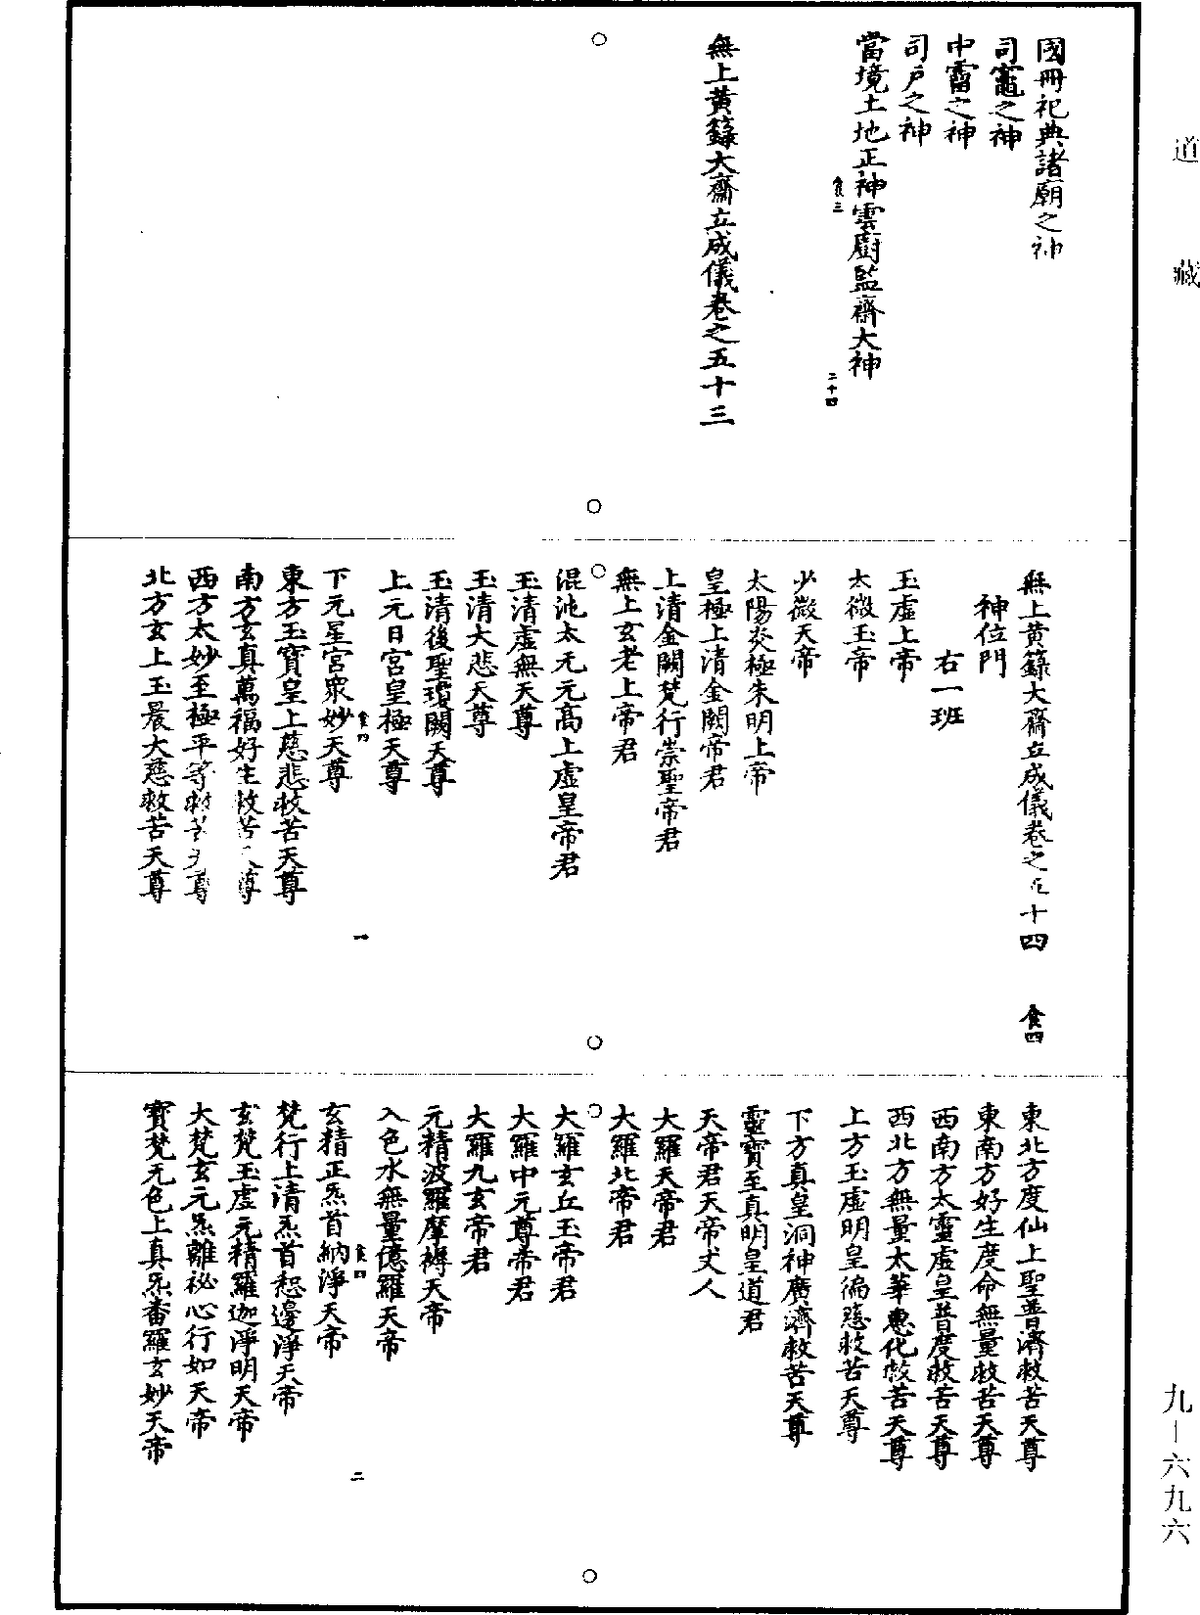 道藏
國冊祀典諸廟之神
司竈之神
中霤之神
司戶之神
當境土地正神雲廚監齋大神
食三
二十四
無上黃籙大齋立成儀卷之五十三
無上黃籙大齋立成儀卷之五十四
食四
神位門
右一班
玉虛上帝
太微玉帝
少微天帝
太陽炎極朱明上帝
皇極上清金闕帝君
上清金闕梵行崇聖帝君
無上玄老上帝君
混沌太元元高上虛皇帝君
玉清虛無天尊
玉清大悲天尊
玉清後聖瓊闕天尊
上元日宮皇極天尊
食四
一
下元星宮眾妙天尊
東方玉寶皇上慈悲救苦天尊
南方玄真萬福好生救苦天尊
西方太妙至極平等救苦天尊
北方玄上玉晨大慈救苦天尊
東北方度仙上聖普濟救苦天尊
東南方好生度命無量救苦天尊
西南方太靈虛皇普度救苦天尊
西北方無量太華惠化救苦天尊
上方玉虛明皇徧慈救苦天尊
下方真皇洞神廣濟救苦天尊
靈寶至真明皇道君
天帝君天帝丈人
大羅天帝君
大羅北帝君
大羅玄丘玉帝君
大羅中元尊帝君
大羅九玄帝君
元精波羅摩褥天帝
入色水無量億羅天帝
食四
二
玄精正炁首納淨天帝
梵行上清炁首恕邊淨天帝
玄梵玉虛元精羅迦淨明天帝
大梵玄元炁離祕心行如天帝
寶梵无色上真炁畨羅玄妙天帝
九－六九六